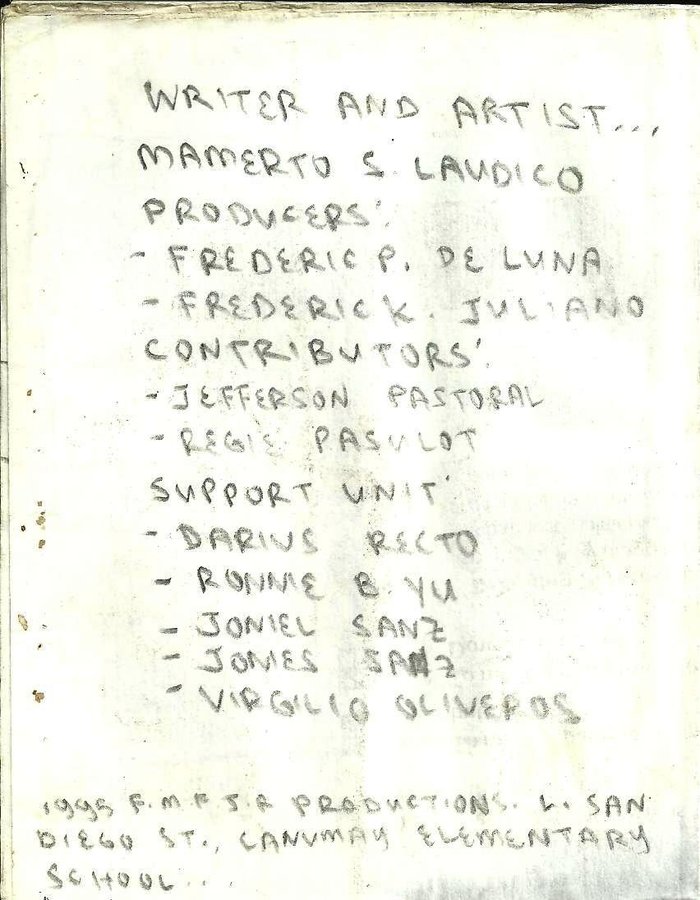 WRITER AND ARTIST...
MAMERTO S. LAUDICO
PRODUCERS'.
- FREDERIC P. DE LUNA
- FREDERICK. JULIANO
CONTRIBUTORS'.
- JEFFERSON PASTORAL
- REGIE PASULOT
SUPPORT UNIT'
- DARIUS RECTO
- RONNIE B. YU
- JONIEL SANZ
- JONIES SANZ
- VIRGILIO OLIVEROS
1995 F.M.F J.R PRODUCTIONS. L. SAN
DIEGO ST., CANUMAY ELEMENTARY
SCHOOL...